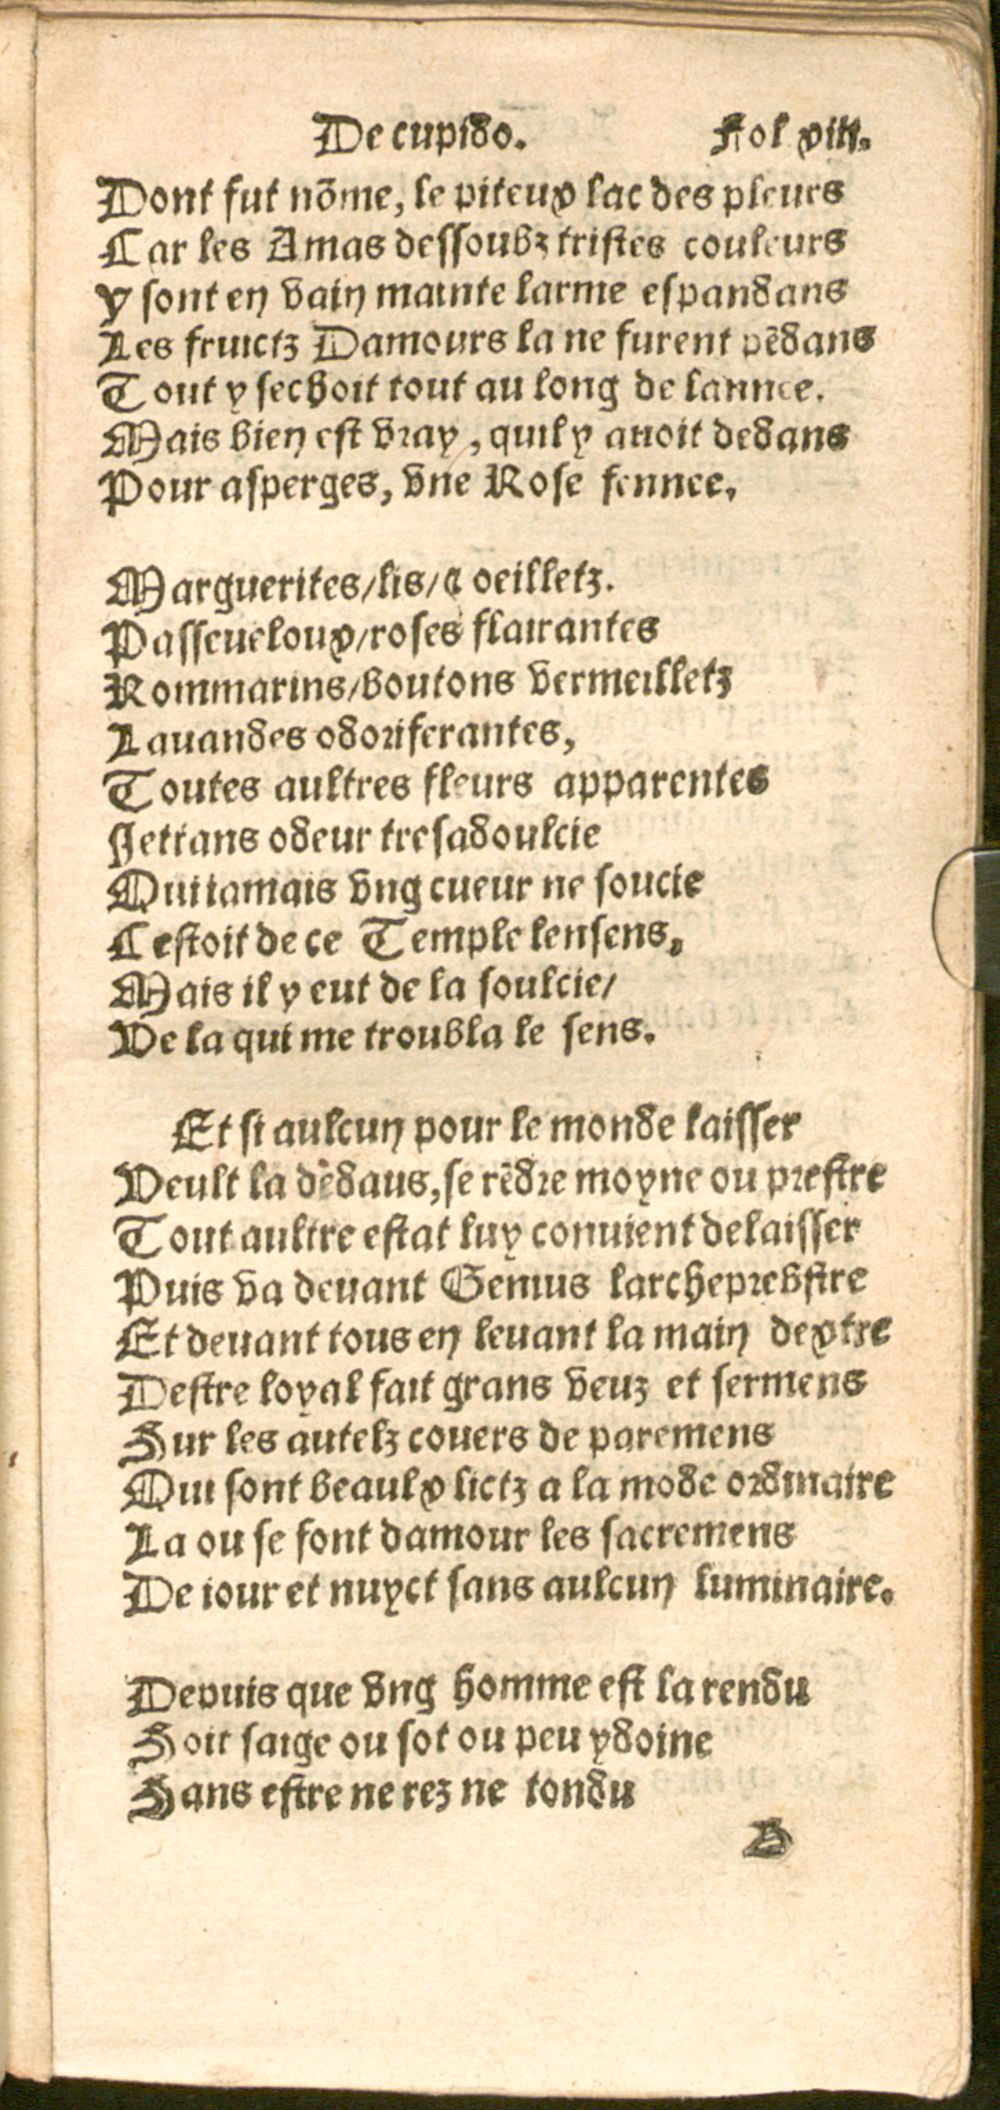 De cupido. Fol viii.
Dont fut nõme, le piteux lac des pleurs
Car les Amas dessoubz tristes couleurs
y sont en vain mainte larme espandans
Les fruictz Damours la ne furent pẽdans
Tout y sechoit tout au long de lannee.
Mais bien est vray, quil y auoit dedans
Pour asperges, vne Rose fennee.
Marguerites/lis/& oeilletz.
Passeueloux/roses flairantes
Rommarins/boutons vermeilletz
Lauandes odoriferantes,
Toutes aultres fleurs apparentes
Jettans odeur tresadoulcie
Qui iamais vng cueur ne soucie
Cestoit de ce Temple lensens.
Mais il y eut de la soulcie/
Vela qui me troubla le sens.
Et si aulcun pour le monde laisser
Veult la dẽdaus, se rẽdre moyne ou prestre
Tout aultre estat luy conuient delaisser
Puis va deuant Genius larcheprebstre
Et deuant tous en leuant la main dextre
Destre loyal fait grans veuz et sermens
Sur les autelz couers de paremens
Qui sont beaulx lictz a la mode ordinaire
La ou se font damour les sacremens
De iour et nuyct sans aulcun luminaire.
Depuis que vng homme est la rendu
Soit saige ou sot ou peu ydoine
Sans estre ne rez ne tondu
B